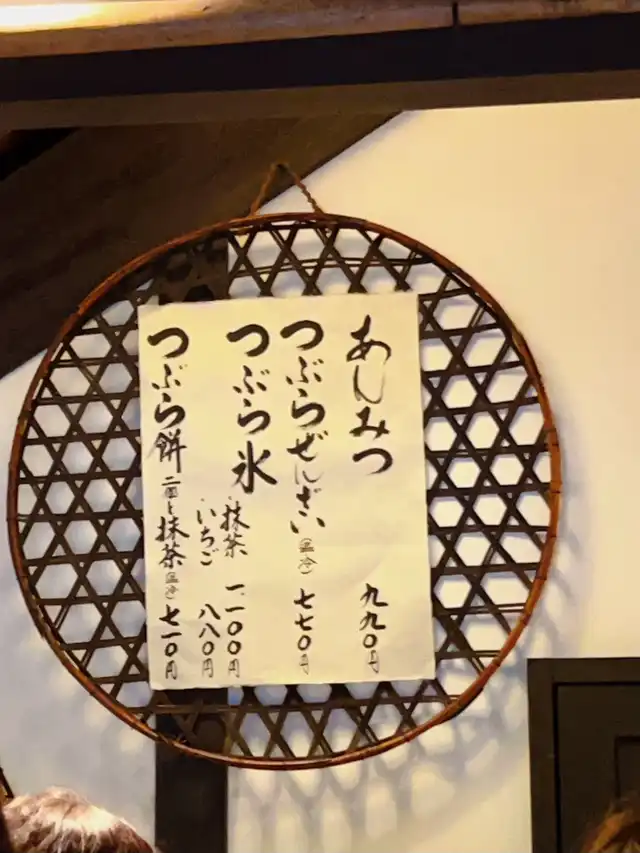 あんみつ 九九〇円
つぶらぜんざい(温冷) 七七〇円
つぶら氷 抹茶 一、一〇〇円
いちご 八八〇円
つぶら餅 二個と抹茶(温冷) 七一〇円